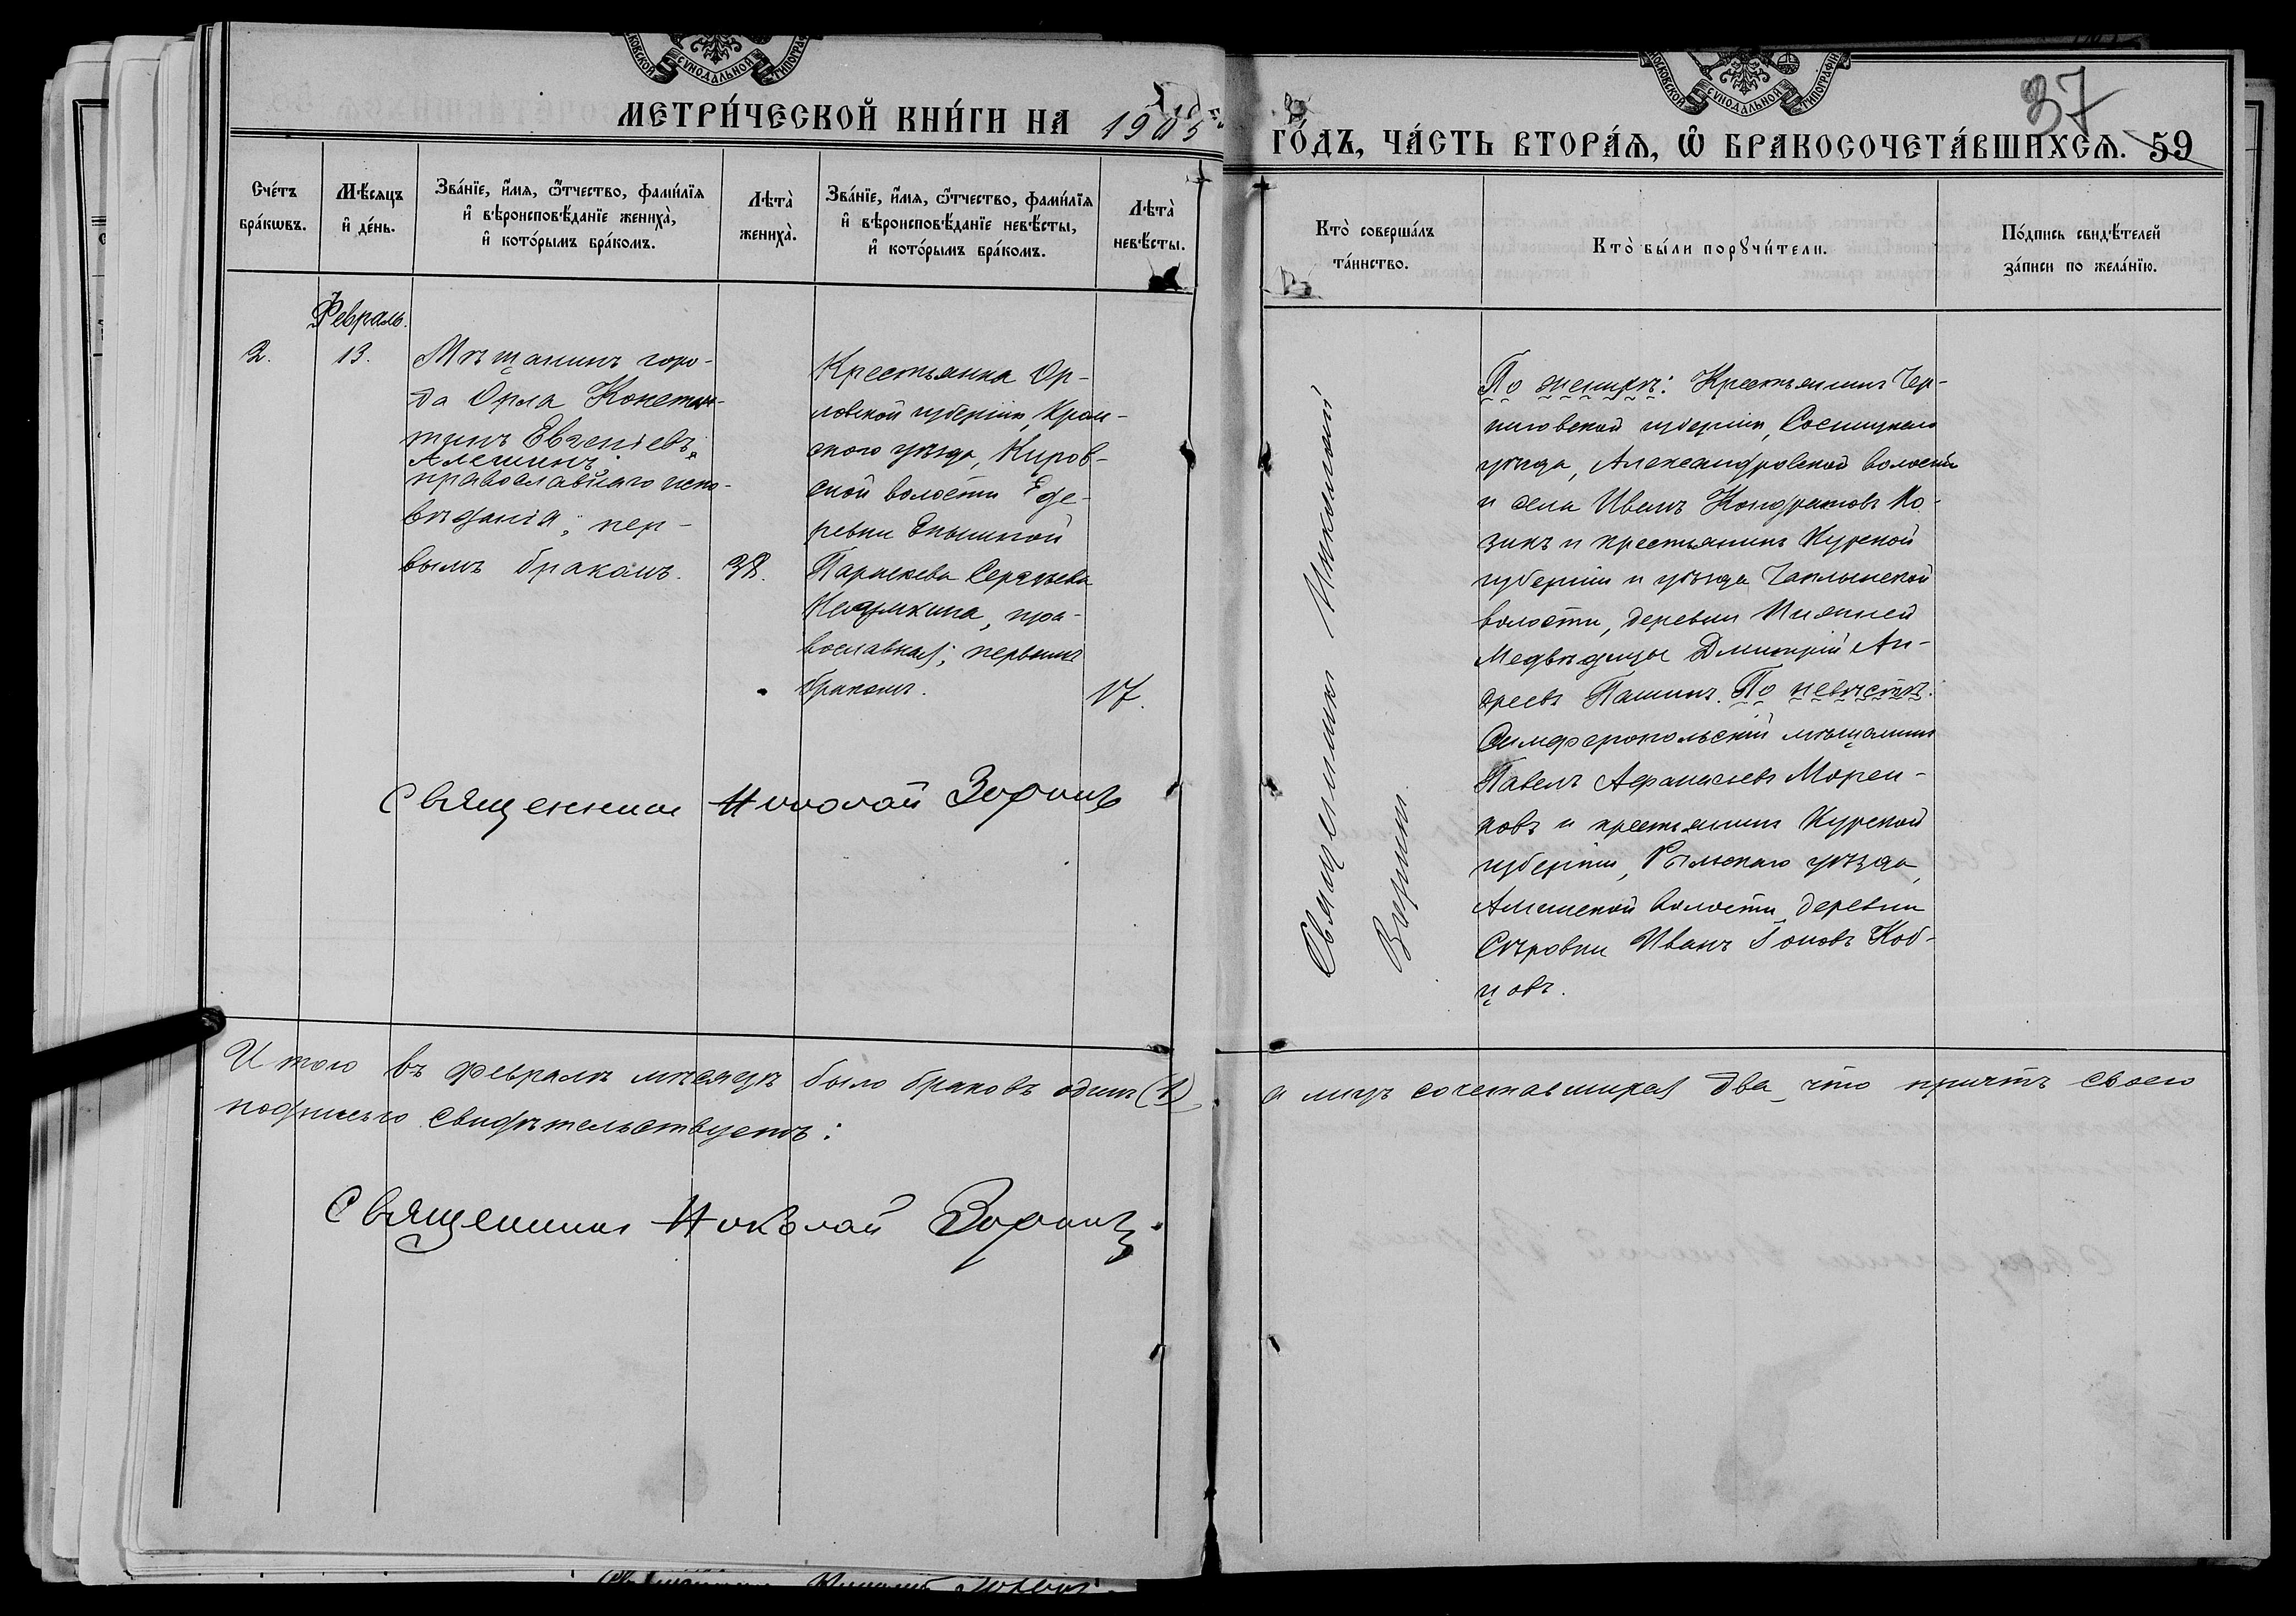 МЕТРИ́ЧЕСКОЙ КНИ́ГИ НА 1905
ГО́ДЪ, ЧА́СТЬ ВТОРА́Ѧ, Ѡ҆ БРАКОСОЧЕТА́ВШИХСѦ. 59
37
МОСКОВСКОЙ СѴНОДАЛЬНОЙ ТИПОГРАФІИ
Сче́тъ бра́кѡвъ.
Мѣ́сяцъ и҆ де́нь.
Зва́нїе, и҆́мѧ, ѻ҆́тчество, фами́лїѧ
и҆ вѣроисповѣ́данїе жениха̀,
и҆ кото́рымъ бра́комъ.
Лѣта̀ жениха̀.
Зва́нїе, и҆́мѧ, ѻ҆́тчество, фами́лїѧ
и҆ вѣроисповѣ́данїе невѣ́сты,
и҆ кото́рымъ бра́комъ.
Лѣта̀ невѣ́сты.
Кто̀ соверша́лъ та́инство.
Кто̀ бы́ли порꙋчи́тели.
По́дпись свидѣ́телей
за́писи по жела́нїю.
Февраль.
2.
13.
Мѣщанинъ горо-
да Орла Констан-
тинъ Евгеніевъ
Алешинъ,
православнаго испо-
вѣданія, пер-
вымъ бракомъ.
38.
Крестьянка Ор-
ловской губерніи, Кром-
ского уѣзда, Киров-
ской волости де-
ревни
Параскева Сергѣева
пра-
вославная, первымъ
бракомъ.
17.
Священникъ Николай
Зоринъ.
По женихѣ: Крестьянинъ Чер-
ниговской губерніи, Сосницкаго
уѣзда, Александровской волости
и села Иванъ Кондратовъ Ко-
зикъ и крестьянинъ Курской
губерніи и уѣзда Чаплынской
волости, деревни Нижней
Медвѣдицы Дмитрій Ан-
дреевъ Пашинъ. По невѣстѣ:
Симферопольскій мѣщанинъ
Павелъ Афанасьевъ Морен-
ковъ и крестьянинъ Курской
губерніи, Рыльскаго уѣзда,
волости, деревни
Сѣровки Иванъ Іоновъ Коб-
цовъ.
Священникъ Николай Зоринъ
Итого въ февралѣ мѣсяцѣ было браковъ одинъ (1)
а лицъ сочетавшихся два, что причтъ своею
подписью свидѣтельствуетъ:
Священникъ Николай Зоринъ.